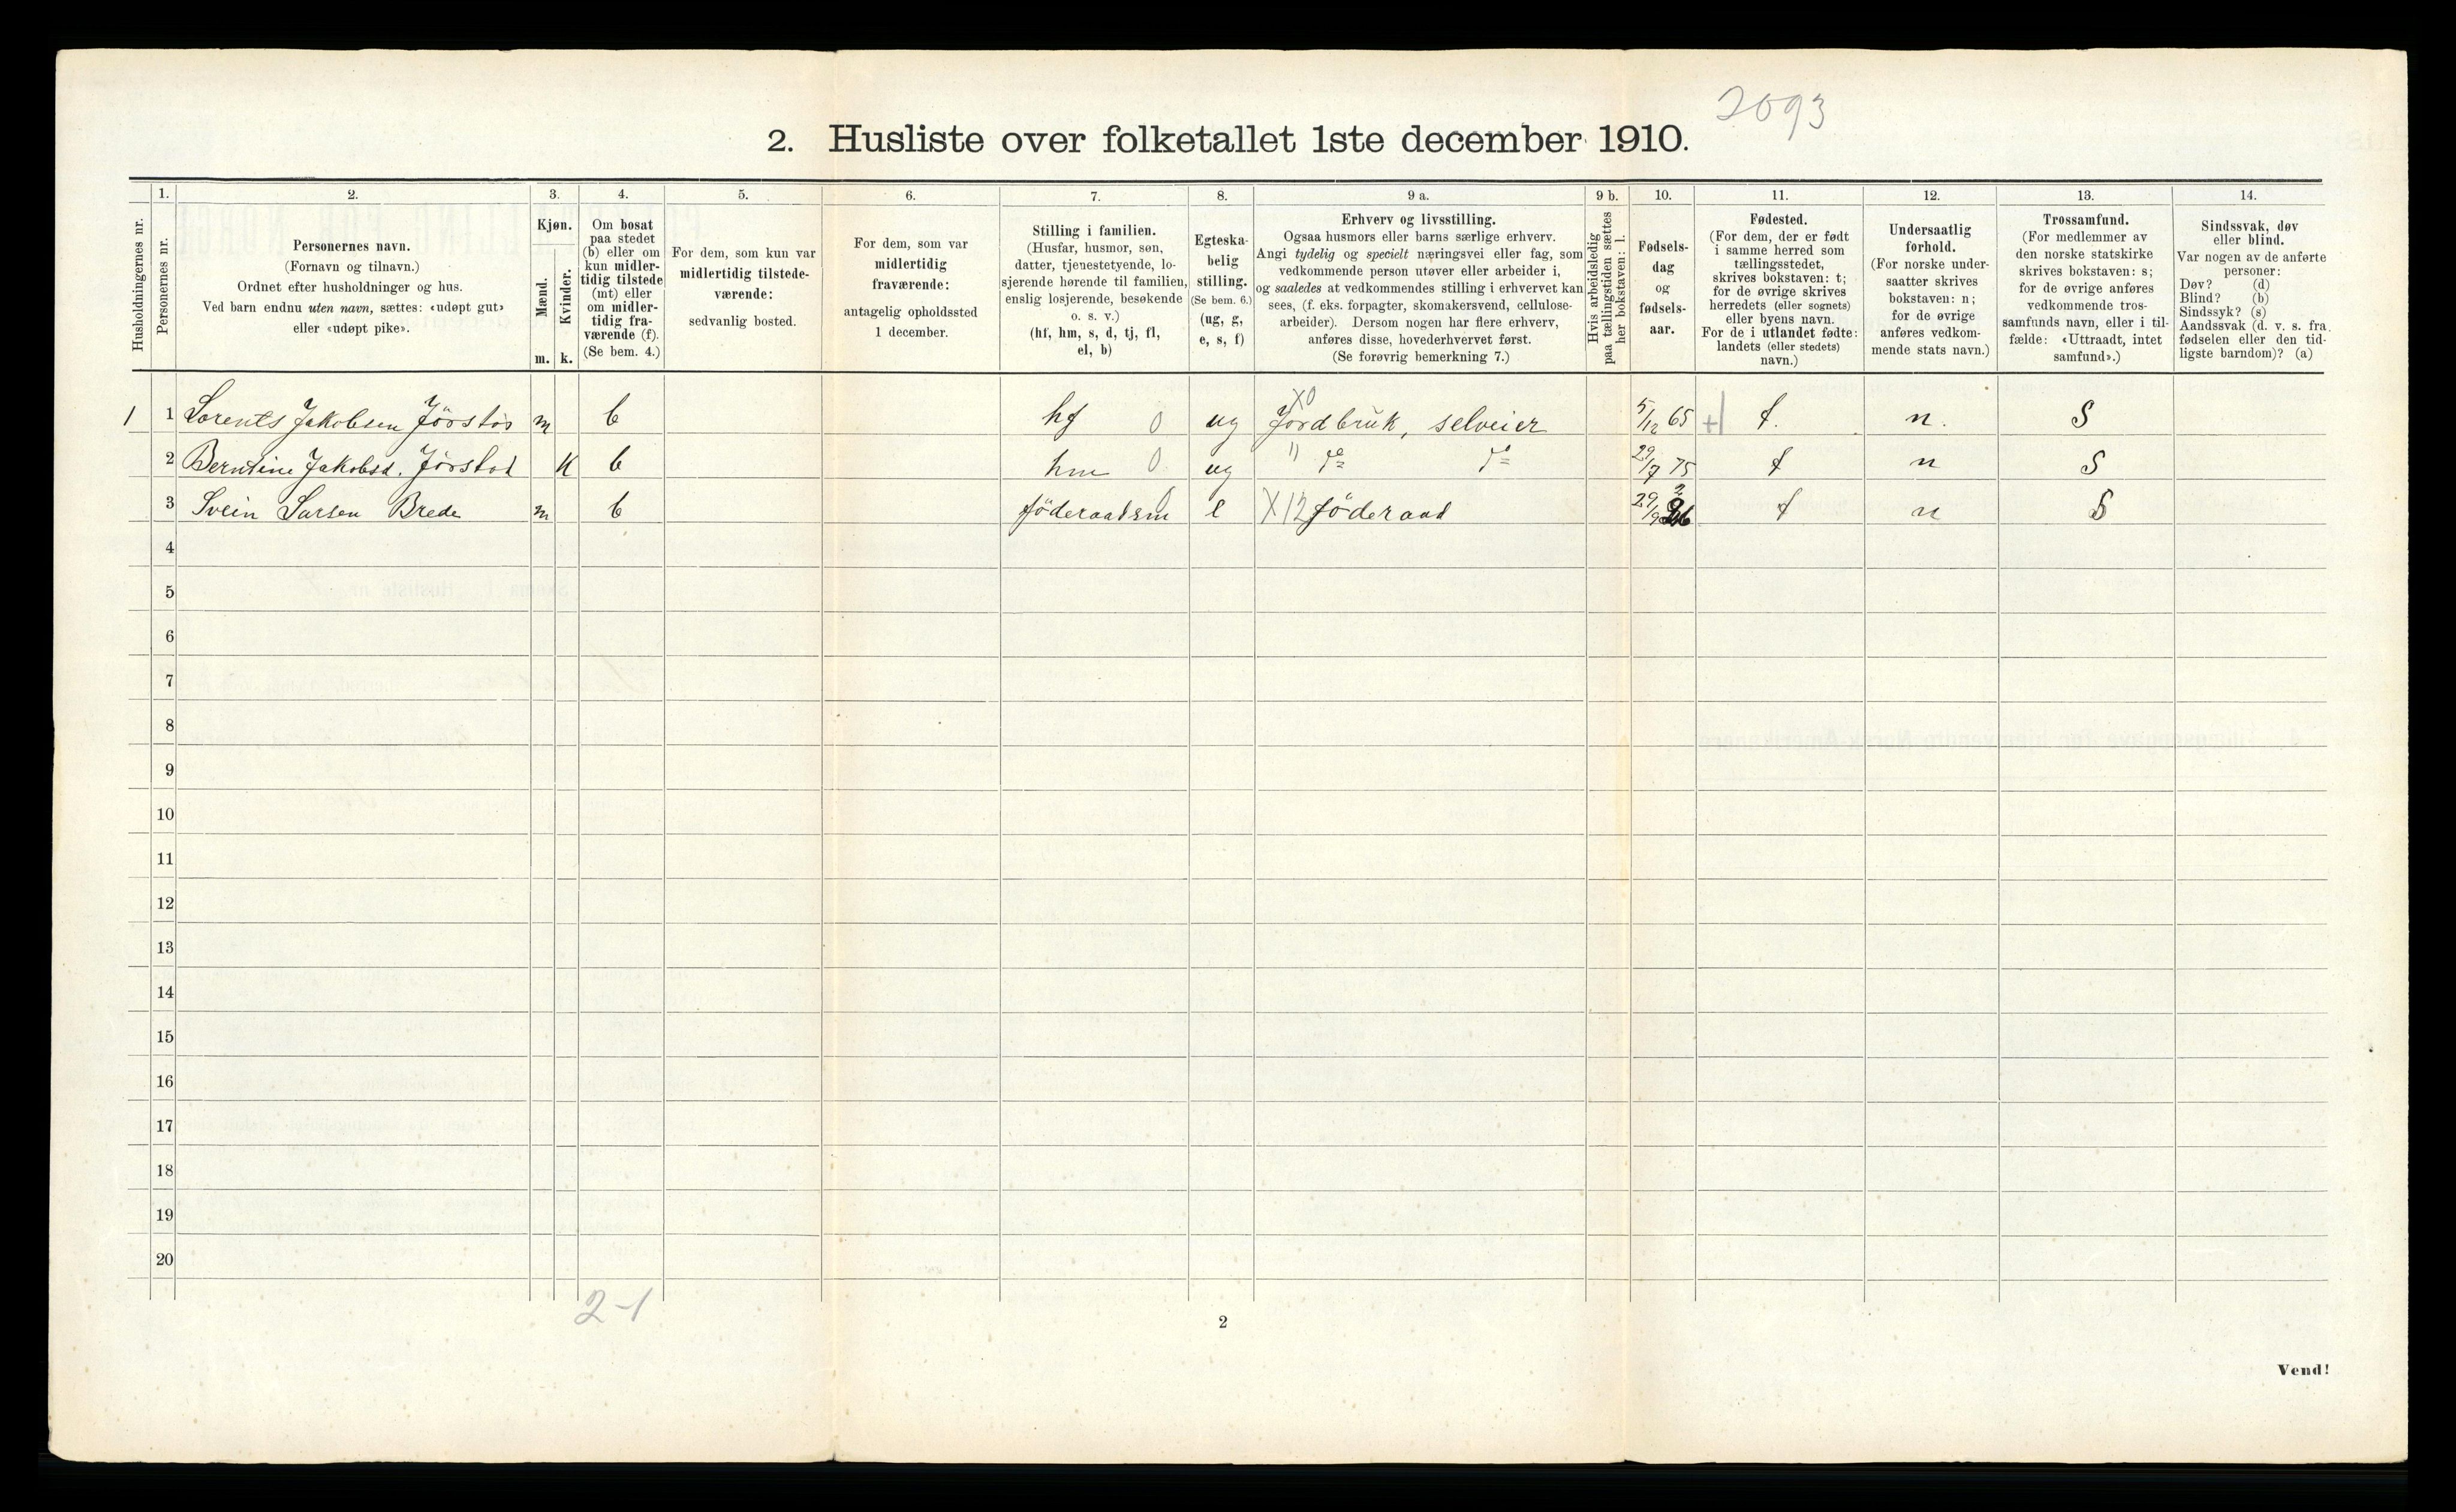 2093
2. Husliste over folketallet 1ste december 1910.
Husholdningernes nr.
1.
Personernes nr.
2.
Personernes navn.
(Fornavn og tilnavn.)
Ordnet efter husholdninger og hus.
Ved barn endnu uten navn, sættes: «udøpt gut»
eller «udøpt pike».
3.
Kjøn.
Mænd.
m.
Kvinder.
k.
4.
Om bosat
paa stedet
(b) eller om
kun midler-
tidig tilstede
(mt) eller
om midler-
tidig fra-
værende (f).
(Se bem. 4.)
5.
For dem, som kun var
midlertidig tilstede-
værende:
sedvanlig bosted.
6.
For dem, som var
midlertidig
fraværende:
antagelig opholdssted
1 december.
7.
Stilling i familien.
(Husfar, husmor, søn,
datter, tjenestetyende, lo-
sjerende hørende til familien,
enslig losjerende, besøkende
o. s. v.)
(hf, hm, s, d, tj, fl,
el, b)
8.
Egteska-
belig
stilling.
(Se bem. 6.)
(ug, g,
e, s, f)
9 a.
Erhverv og livsstilling.
Ogsaa husmors eller barns særlige erhverv.
Angi tydelig og specielt næringsvei eller fag, som
vedkommende person utøver eller arbeider i,
og saaledes at vedkommendes stilling i erhvervet kan
sees, (f. eks. forpagter, skomakersvend, cellulose-
arbeider). Dersom nogen har flere erhverv,
anføres disse, hovederhvervet først.
(Se forøvrig bemerkning 7.)
9 b.
Hvis arbeidsledig
paa tællingstiden sættes
her bokstaven: l.
10.
Fødsels-
dag
og
fødsels-
aar.
11.
Fødested.
(For dem, der er født
i samme herred som
tællingsstedet,
skrives bokstaven: t;
for de øvrige skrives
herredets (eller sognets)
eller byens navn.
For de i utlandet fødte:
landets (eller stedets)
navn.)
12.
Undersaatlig
forhold.
(For norske under-
saatter skrives
bokstaven: n;
for de øvrige
anføres vedkom-
mende stats navn.)
13.
Trossamfund.
(For medlemmer av
den norske statskirke
skrives bokstaven: s;
for de øvrige anføres
vedkommende tros-
samfunds navn, eller i til-
fælde: «Uttraadt, intet
samfund».)
14.
Sindssvak, døv
eller blind.
Var nogen av de anførte
personer:
Døv? (d)
Blind? (b)
Sindssyk? (s)
Aandssvak (d. v. s. fra
fødselen eller den tid-
ligste barndom)? (a)
1 1 Lorents Jakobsen Jörstad m b hf 0 ug X0 Jordbruk, selveier 5/12 65 t. n. S
2 Berntine Jakobsd. Jörstad K b hm 0 ug " do do 29/7 75 t n S
3 Svein Larsen Brede m b föderaadsm 0 e X12 föderaad 29/9 26 t n S
4
5
6
7
8
9
10
11
12
13
14
15
16
17
18
19
20
2-1
2
Vend!